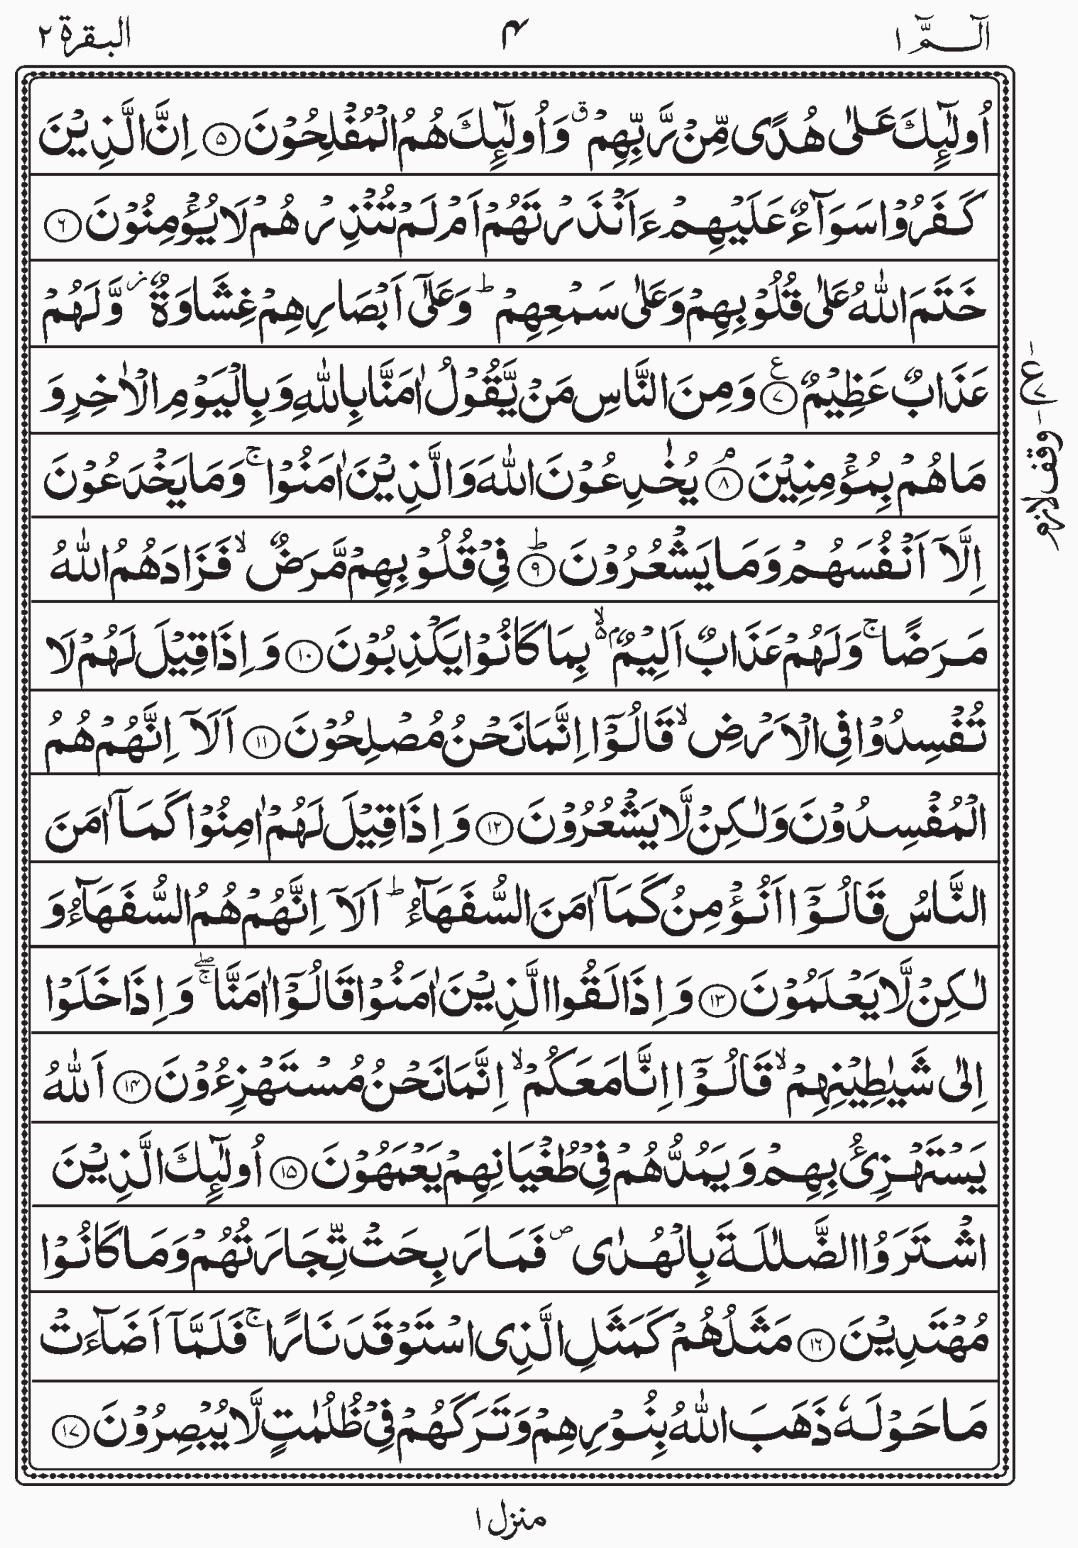 الٓـمّٓ ۱
۴
البقرة ۲
اُولٰٓئِكَ عَلٰى هُدًى مِّنْ رَّبِّهِمْ ۗ وَاُولٰٓئِكَ هُمُ الْمُفْلِحُوْنَ ۵ اِنَّ الَّذِيْنَ
كَفَرُوْا سَوَآءٌ عَلَيْهِمْ ءَاَنْذَرْتَهُمْ اَمْ لَمْ تُنْذِرْهُمْ لَا يُؤْمِنُوْنَ ۶
خَتَمَ اللّٰهُ عَلٰى قُلُوْبِهِمْ وَعَلٰى سَمْعِهِمْ ؕ وَعَلٰٓى اَبْصَارِهِمْ غِشَاوَةٌ ز وَّلَهُمْ
عَذَابٌ عَظِيْمٌ ۷ ع وَمِنَ النَّاسِ مَنْ يَّقُوْلُ اٰمَنَّا بِاللّٰهِ وَبِالْيَوْمِ الْاٰخِرِ وَ
ع ۷
مَا هُمْ بِمُؤْمِنِيْنَ ۸ ۘ يُخٰدِعُوْنَ اللّٰهَ وَالَّذِيْنَ اٰمَنُوْا ۚ وَمَا يَخْدَعُوْنَ
وقف لازم
اِلَّآ اَنْفُسَهُمْ وَمَا يَشْعُرُوْنَ ۹ ؕ فِيْ قُلُوْبِهِمْ مَّرَضٌ ۙ فَزَادَهُمُ اللّٰهُ
مَرَضًا ۚ وَلَهُمْ عَذَابٌ اَلِيْمٌۢ ۵ۙ بِمَا كَانُوْا يَكْذِبُوْنَ ۱۰ وَاِذَا قِيْلَ لَهُمْ لَا
تُفْسِدُوْا فِى الْاَرْضِ ۙ قَالُوْٓا اِنَّمَا نَحْنُ مُصْلِحُوْنَ ۱۱ اَلَآ اِنَّهُمْ هُمُ
الْمُفْسِدُوْنَ وَلٰكِنْ لَّا يَشْعُرُوْنَ ۱۲ وَاِذَا قِيْلَ لَهُمْ اٰمِنُوْا كَمَآ اٰمَنَ
النَّاسُ قَالُوْٓا اَنُؤْمِنُ كَمَآ اٰمَنَ السُّفَهَآءُ ؕ اَلَآ اِنَّهُمْ هُمُ السُّفَهَآءُ وَ
لٰكِنْ لَّا يَعْلَمُوْنَ ۱۳ وَاِذَا لَقُوا الَّذِيْنَ اٰمَنُوْا قَالُوْٓا اٰمَنَّا ۚۖ وَاِذَا خَلَوْا
اِلٰى شَيٰطِيْنِهِمْ ۙ قَالُوْٓا اِنَّا مَعَكُمْ ۙ اِنَّمَا نَحْنُ مُسْتَهْزِءُوْنَ ۱۴ اَللّٰهُ
يَسْتَهْزِئُ بِهِمْ وَيَمُدُّهُمْ فِيْ طُغْيَانِهِمْ يَعْمَهُوْنَ ۱۵ اُولٰٓئِكَ الَّذِيْنَ
اشْتَرَوُا الضَّلٰلَةَ بِالْهُدٰى ص فَمَا رَبِحَتْ تِّجَارَتُهُمْ وَمَا كَانُوْا
مُهْتَدِيْنَ ۱۶ مَثَلُهُمْ كَمَثَلِ الَّذِى اسْتَوْقَدَ نَارًا ۚ فَلَمَّآ اَضَآءَتْ
مَا حَوْلَهٗ ذَهَبَ اللّٰهُ بِنُوْرِهِمْ وَتَرَكَهُمْ فِيْ ظُلُمٰتٍ لَّا يُبْصِرُوْنَ ۱۷
منزل ۱